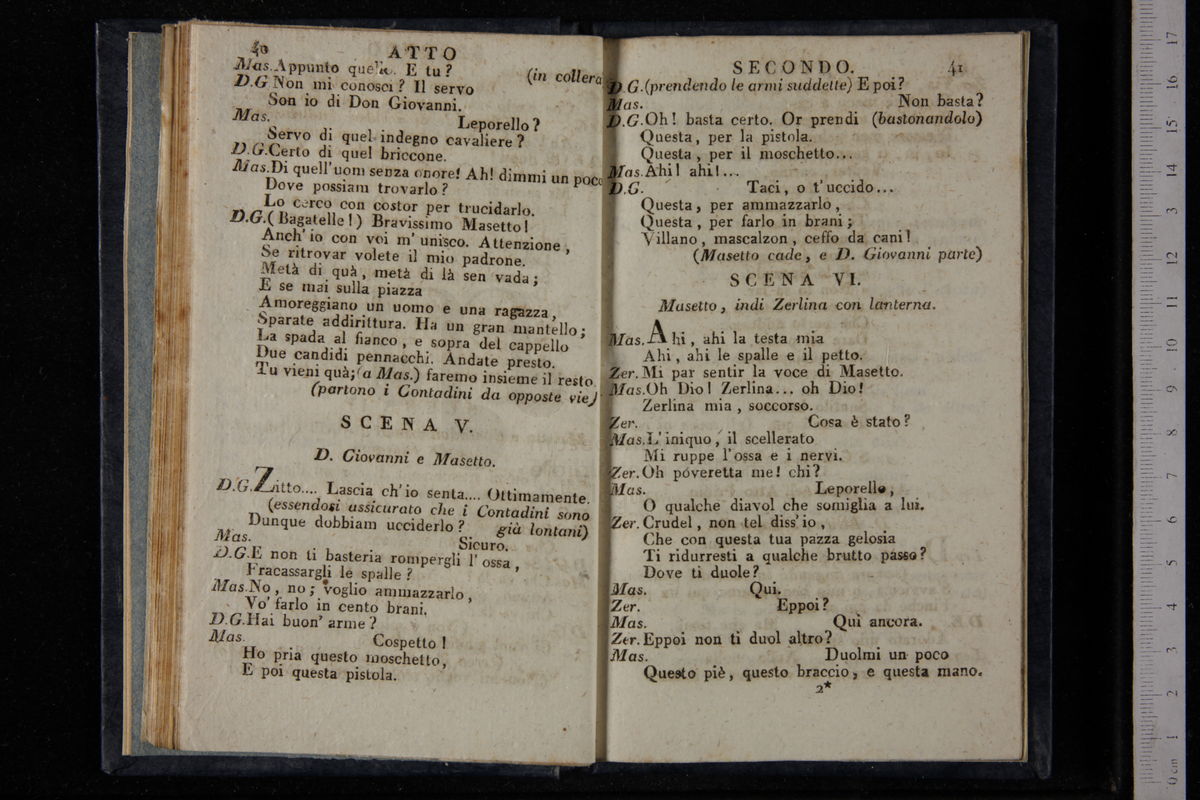 40 ATTO
Mas. Appunto quello. E tu? (in collera
D.G Non mi conosci? Il servo
Son io di Don Giovanni.
Mas. Leporello?
Servo di quel indegno cavaliere?
D.G. Certo di quel briccone.
Mas. Di quell'uom senza onore! Ah! dimmi un poco
Dove possiam trovarlo?
Lo cerco con costor per trucidarlo.
D.G. (Bagatelle!) Bravissimo Masetto!
Anch' io con voi m' unisco. Attenzione,
Se ritrovar volete il mio padrone.
Metà di quà, metà di là sen vada;
E se mai sulla piazza
Amoreggiano un uomo e una ragazza,
Sparate addirittura. Ha un gran mantello;
La spada al fianco, e sopra del cappello
Due candidi pennacchi. Andate presto.
Tu vieni quà; (a Mas.) faremo insieme il resto.
(partono i Contadini da opposte vie)
SCENA V.
D. Giovanni e Masetto.
D.G. Zitto.... Lascia ch'io senta.... Ottimamente.
(essendosi assicurato che i Contadini sono
Dunque dobbiam ucciderlo? già lontani)
Mas. Sicuro.
D.G. E non ti basteria rompergli l' ossa,
Fracassargli le spalle?
Mas. No, no; voglio ammazzarlo,
Vo' farlo in cento brani.
D.G. Hai buon' arme?
Mas. Cospetto!
Ho pria questo moschetto,
E poi questa pistola.
SECONDO. 41
D.G. (prendendo le armi suddette) E poi?
Mas. Non basta?
D.G. Oh! basta certo. Or prendi (bastonandolo)
Questa, per la pistola.
Questa, per il moschetto...
Mas. Ahi! ahi!...
D.G. Taci, o t' uccido...
Questa, per ammazzarlo,
Questa, per farlo in brani;
Villano, mascalzon, ceffo da cani!
(Masetto cade, e D. Giovanni parte)
SCENA VI.
Masetto, indi Zerlina con lanterna.
Mas. Ahi, ahi la testa mia
Ahi, ahi le spalle e il petto.
Zer. Mi par sentir la voce di Masetto.
Mas. Oh Dio! Zerlina... oh Dio!
Zerlina mia, soccorso.
Zer. Cosa è stato?
Mas. L' iniquo, il scellerato
Mi ruppe l'ossa e i nervi.
Zer. Oh póveretta me! chi?
Mas. Leporello,
O qualche diavol che somiglia a lui.
Zer. Crudel, non tel diss' io,
Che con questa tua pazza gelosia
Ti ridurresti a qualche brutto passo?
Dove ti duole?
Mas. Qui.
Zer. Eppoi?
Mas. Qui ancora.
Zer. Eppoi non ti duol altro?
Mas. Duolmi un poco
Questo piè, questo braccio, e questa mano.
2*
0 cm 1 2 3 4 5 6 7 8 9 10 11 12 13 14 15 16 17